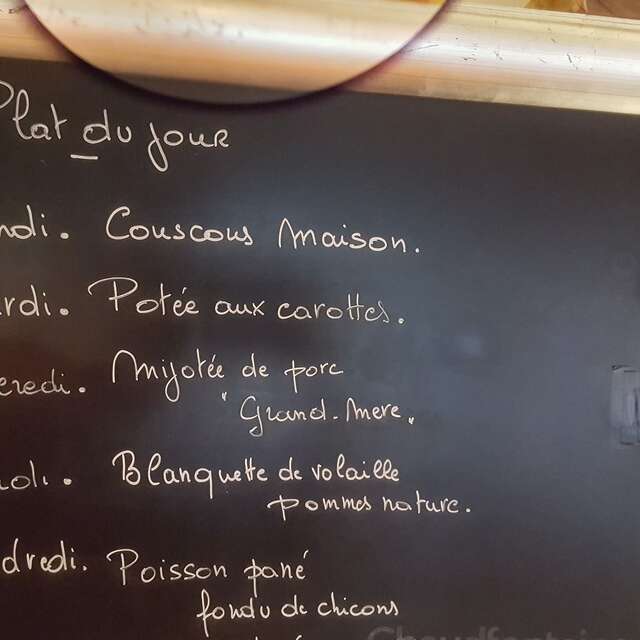 Plat du jour
ndi. Couscous maison.
rdi. Potée aux carottes.
credi. Mijotée de porc
"Grand-mere"
di. Blanquette de volaille
pommes nature.
dredi. Poisson pané
fondu de chicons